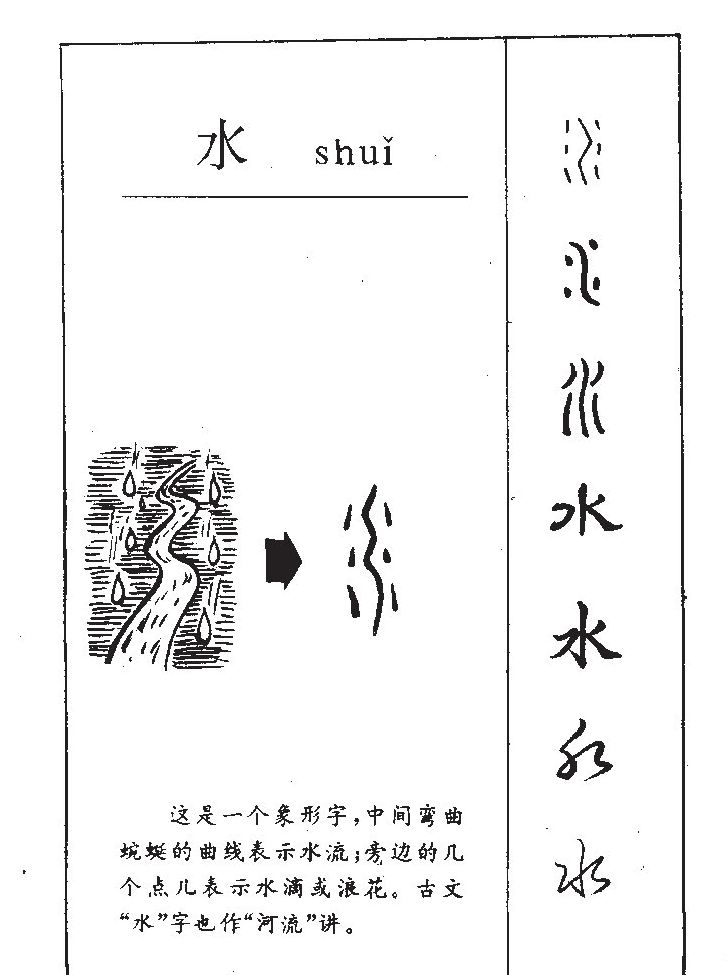 水 shuǐ
这是一个象形字，中间弯曲
蜿蜒的曲线表示水流；旁边的几
个点儿表示水滴或浪花。古文
“水”字也作“河流”讲。
水
水
水
水
水
水
水